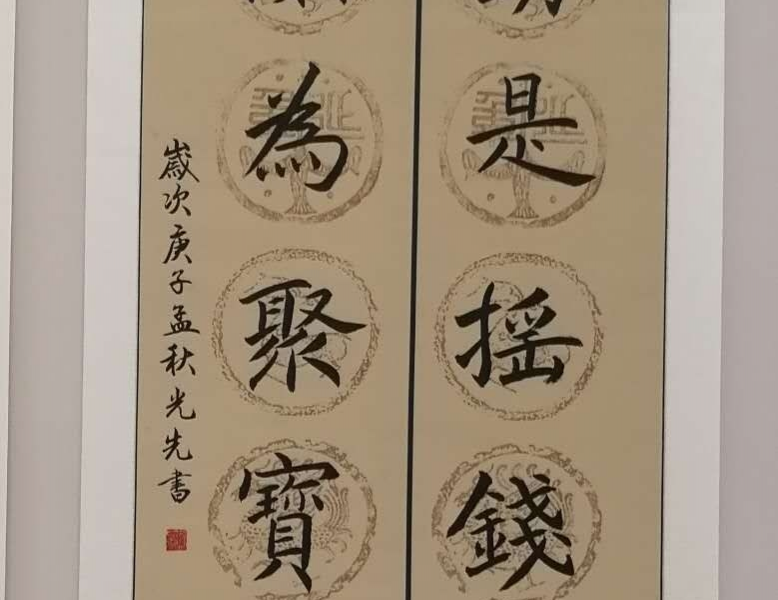 是搖錢
為聚寶
歲次庚子孟秋光先書